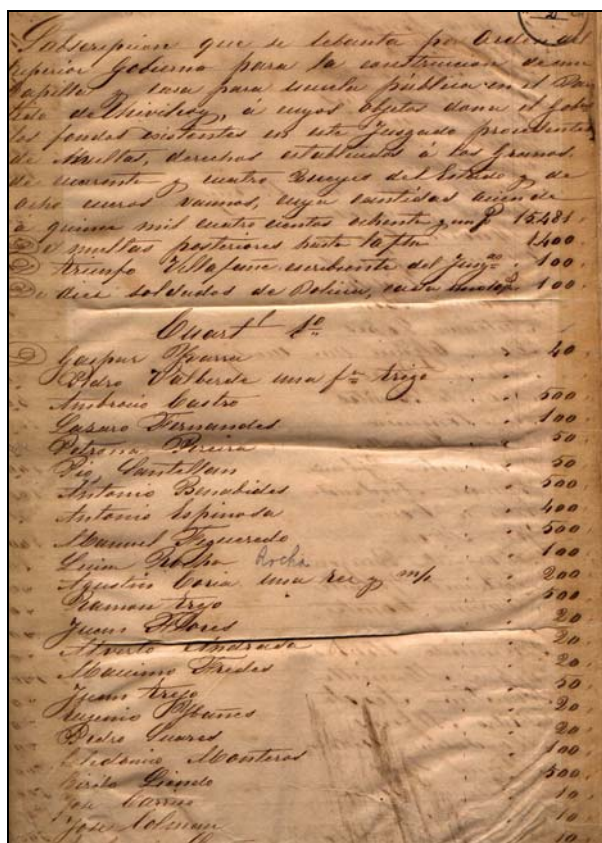 Subscripcion que se lebanta por orden del
Superior Gobierno para la construccion de una
Capilla y casa para escuela pública en el Par
tido de Chivilcoy, á cuyos objetos dona el Gobo
los fondos existentes en este Juzgado procedentes
de Multas, derechos establecidos á los Granos,
de cuarenta y cuatro Bueyes del Estado y de
ocho cueros vacunos, cuya cantidad aciende
a quince mil cuatro cientos ochenta y un p 15481.
De multas posteriores hasta la fha 1.400.
Triunfo Villafañe escribiente del Juzgdo 100.
De dies soldados de Policia, cada 100.
Cuartl 1o
Gaspar Ybarra 40.
Pedro Valberde una fa trigo
Ambrocio Castro 500
Lazaro Fernandes 100
Petrona Pereira 50
Pio Santellan 50
Antonio Benabides 500
Antonio Espinosa 400
Manuel Figueredo 500
Luisa Rocha Rocha 100
Agustin Coria una res y m/c 200
Ramon trejo 500
Juan Flores 20
Alverto Andrada 20
Maximo Fredes 20
Juan trejo 50
Eugenio Ybañes 20
Pedro Suares 20
Eledonio Monteros 100
Cirilo Liendo 500
Jose Carriso 10
Jose Colman 10
10